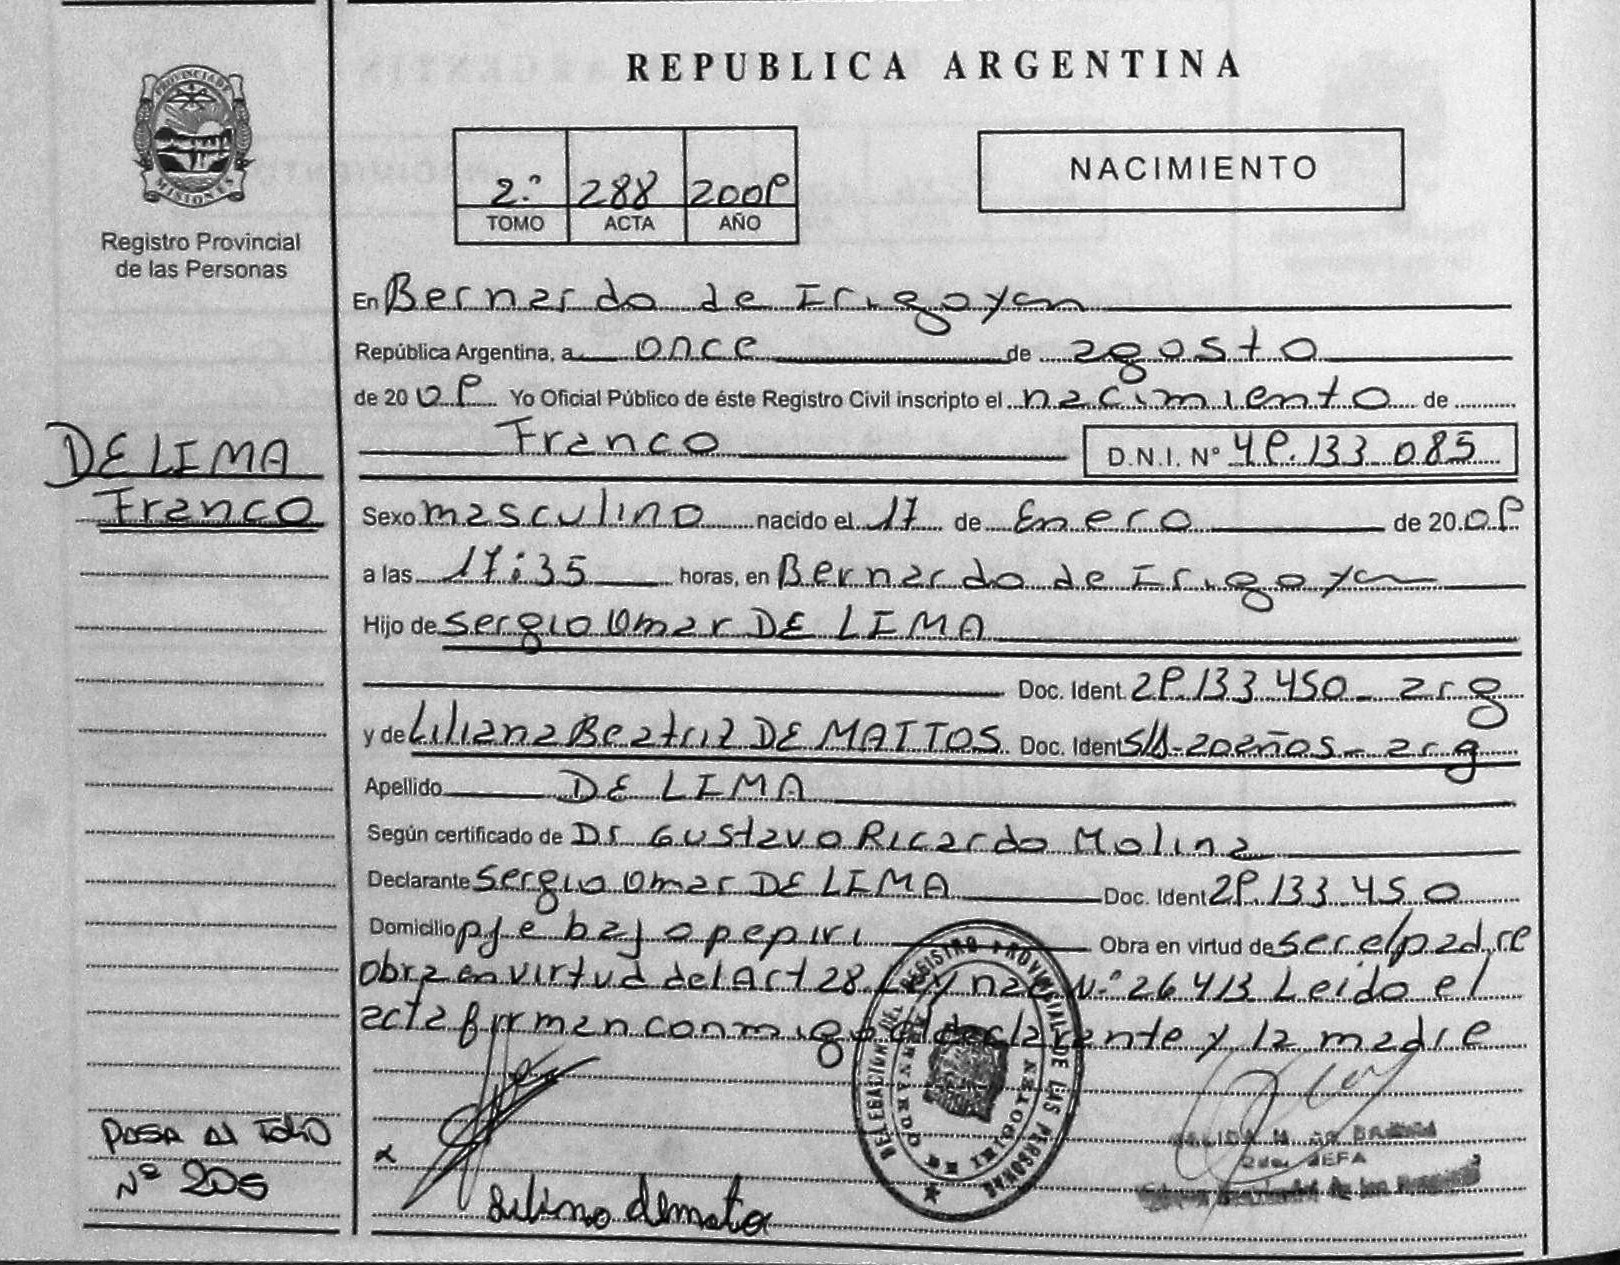 PROVINCIA DE
MISIONES
Registro Provincial
de las Personas
REPUBLICA ARGENTINA
2.º 288 2009
TOMO ACTA AÑO
NACIMIENTO
En Bernardo de Irigoyen
República Argentina, a once de agosto
de 2009 Yo Oficial Público de éste Registro Civil inscripto el nacimiento de
Franco D.N.I. Nº 49.133.085
DE LIMA
Franco
Sexo masculino nacido el 17 de Enero de 2009
a las 17:35 horas, en Bernardo de Irigoyen
Hijo de Sergio Omar DE LIMA
Doc. Ident. 29.133.450 - arg
y de Liliana Beatriz DE MATTOS Doc. Ident S/D - 20 años - arg
Apellido DE LIMA
Según certificado de Dr Gustavo Ricardo Molina
Declarante Sergio Omar DE LIMA Doc. Ident 29.133.450
Domicilio pje bajo pepiri Obra en virtud de ser el padre
obra en virtud del Art 28 Ley nac N.º 26413 Leido el
acta firman conmigo el declarante y la madre
DELEGACIÓN DEL REGISTRO PROVINCIAL DE LAS PERSONAS
BERNARDO DE IRIGOYEN
2da. JEFA
de las Personas
PASA AL FOLIO
Nº 205